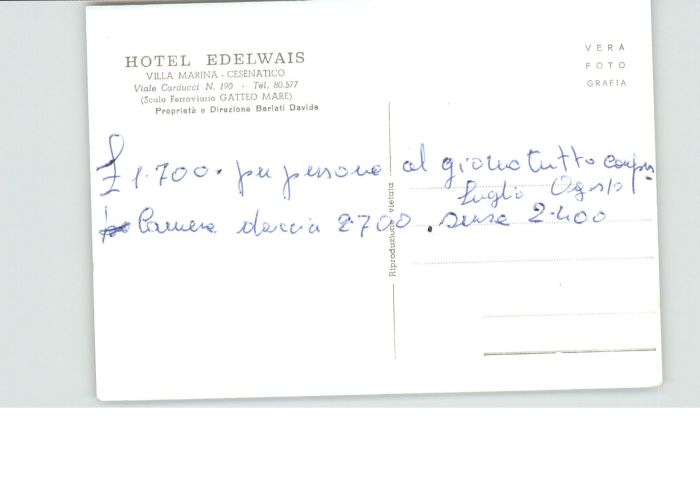 HOTEL EDELWAIS
VILLA MARINA - CESENATICO
Viale Carducci N. 190 - Tel. 80.577
(Scalo Ferroviario GATTEO MARE)
Proprietà e Direzione Berlati Davide
VERA
FOTO
GRAFIA
£ 1.700. per persona al giorno tutto compr
luglio Agosto
camera doccia 2.700. senza 2.400
Riproduzione vietata